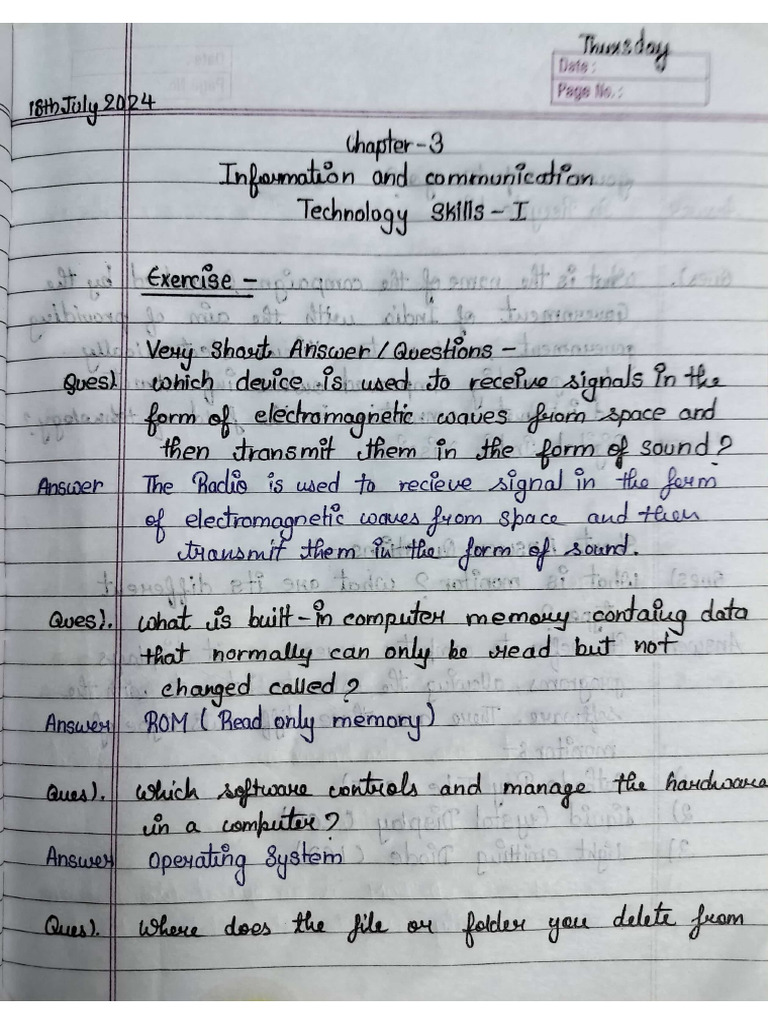 Thursday
Date :
Page No. :
18th July 2024
Chapter-3
Information and communication
Technology Skills - I
Exercise -
Very Short Answer / Questions -
Ques). which device is used to receive signals in the
form of electromagnetic waves from space and
then transmit them in the form of sound?
Answer The Radio is used to recieve signal in the form
of electromagnetic waves from space and then
transmit them in the form of sound.
Ques). what is built-in computer memory containg data
that normally can only be read but not
changed called?
Answer ROM ( Read only memory)
Ques). which software controls and manage the hardware
in a computer?
Answer operating system
Ques). where does the file or folder you delete from